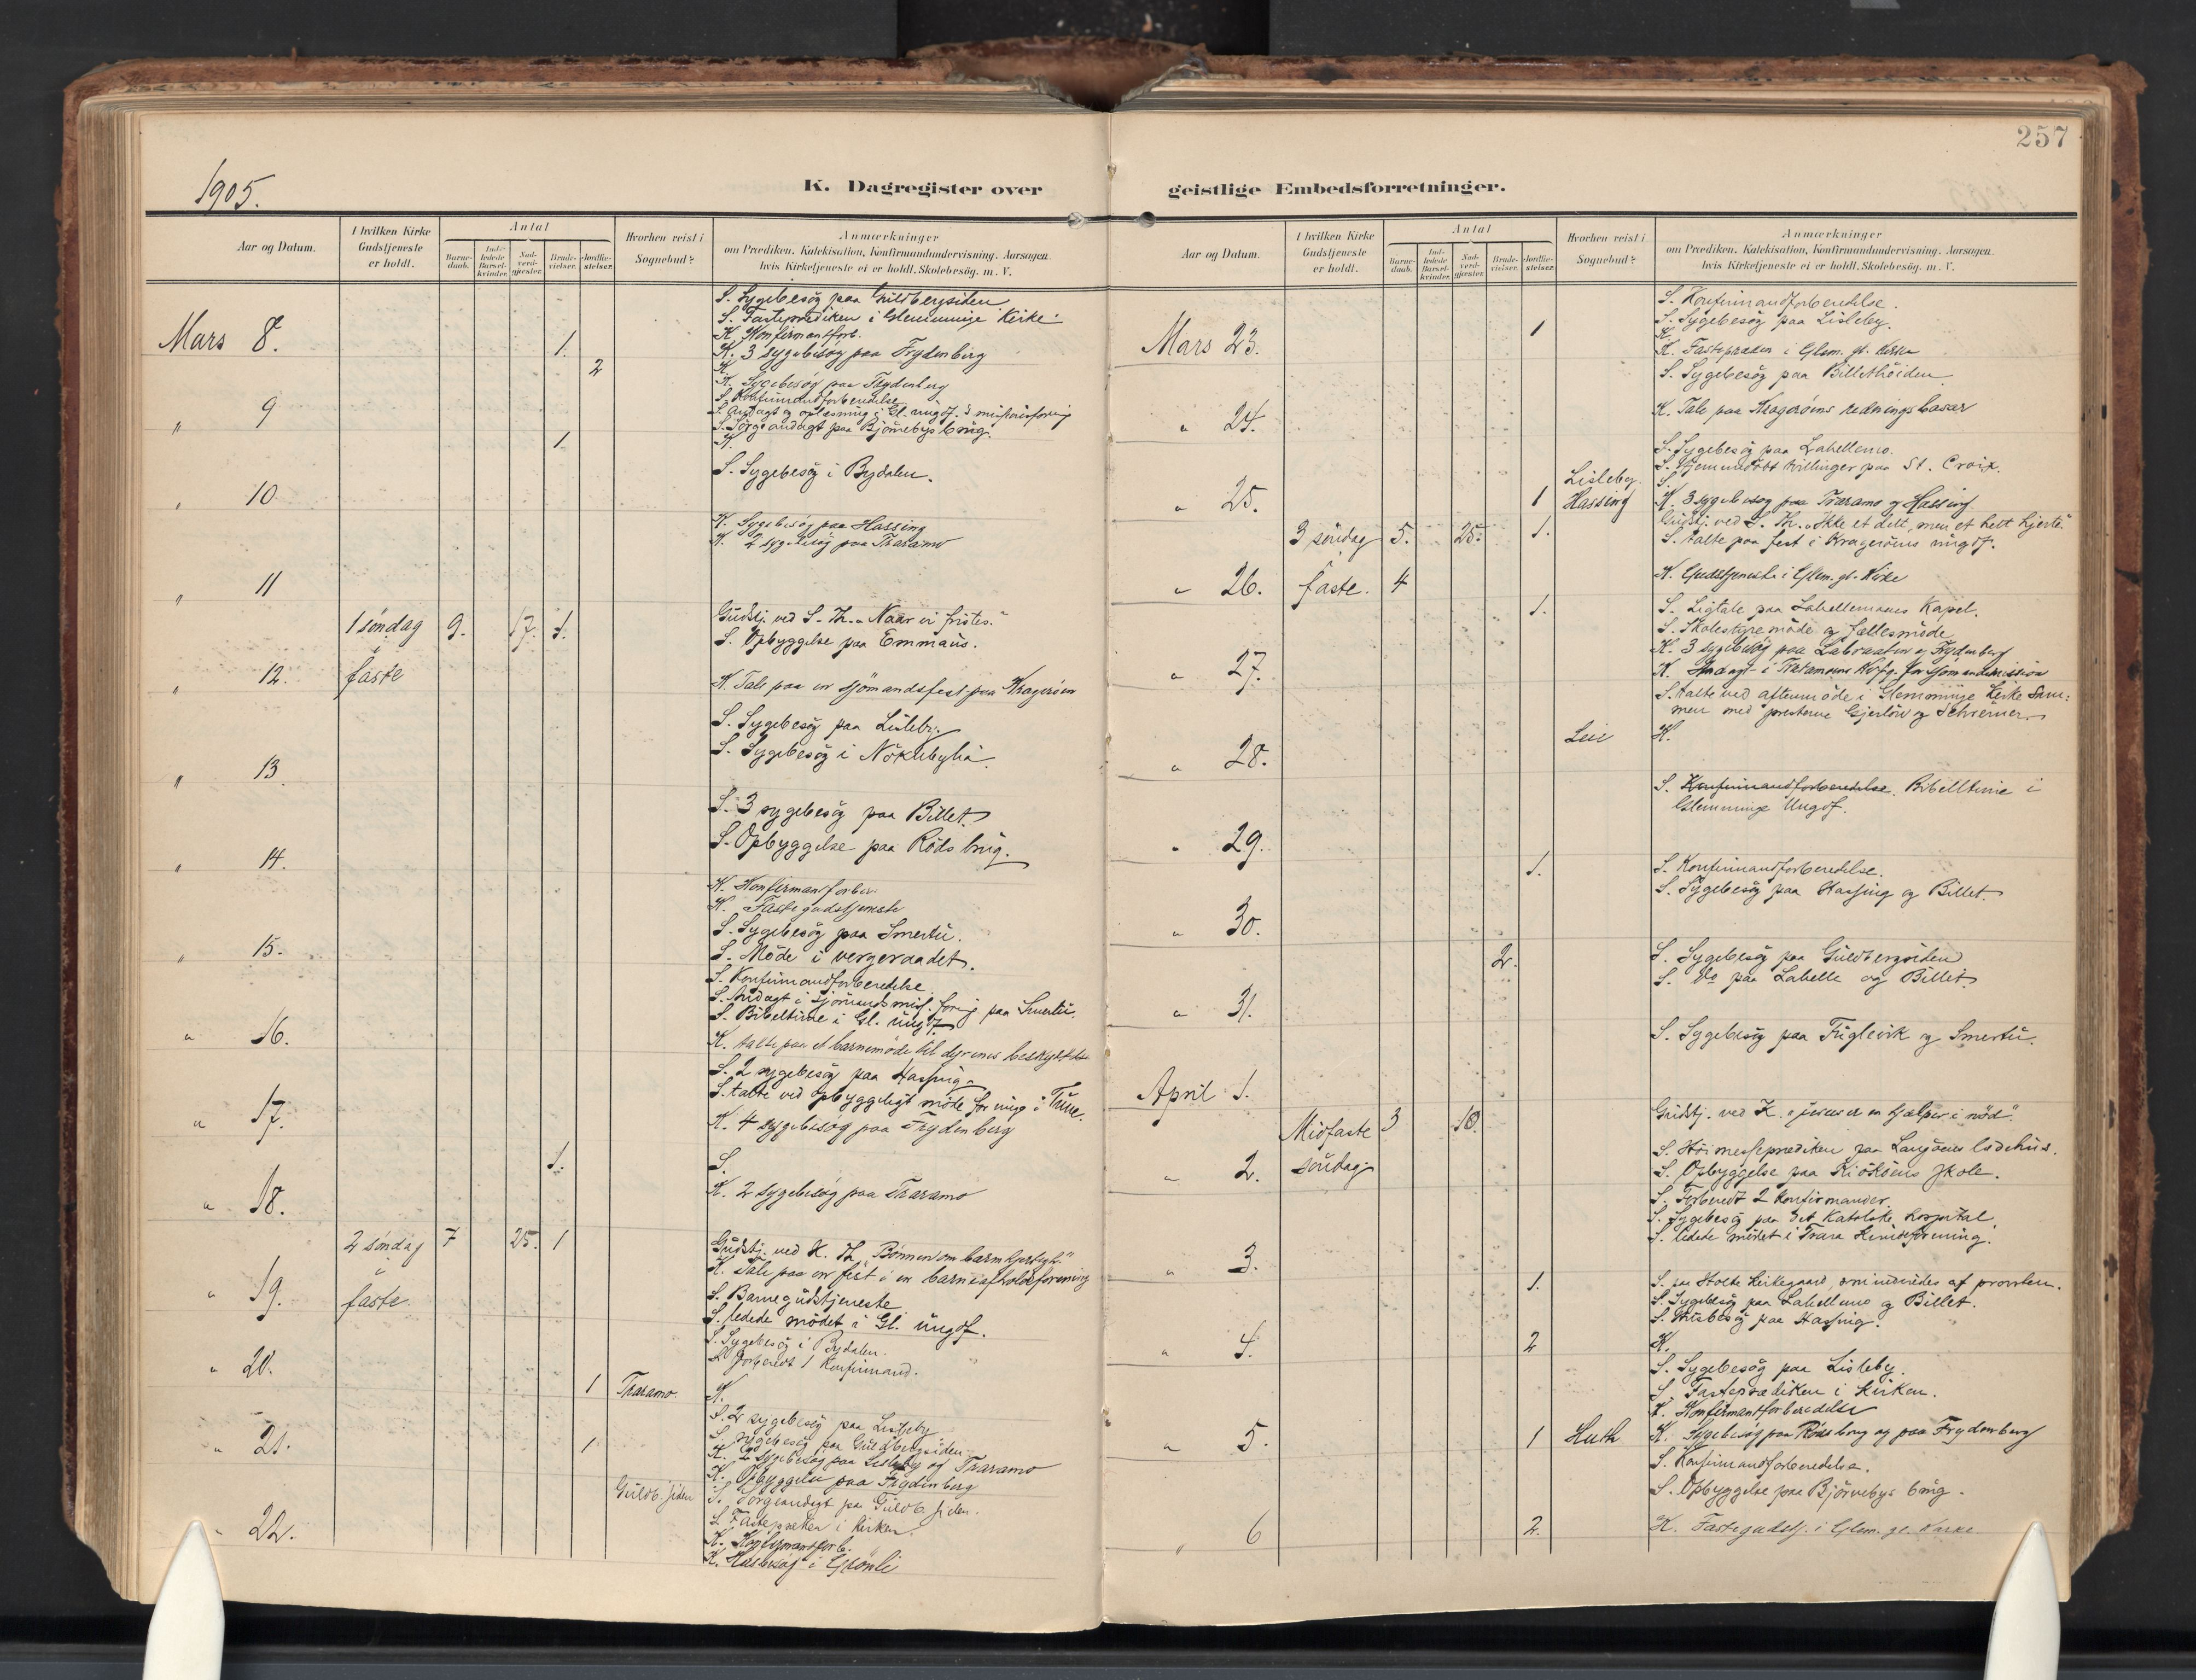 257
1905.
K. Dagregister over geistlige Embedsforretninger.
Aar og Datum.
I hvilken Kirke Gudstjeneste er holdt.
Antal
Barne-daab.
Ind-ledede Barsel-kvinder.
Nad-verd-gjester.
Brude-vielser.
Jordfæ-stelser.
Hvorhen reist i Sognebud?
Anmærkninger
om Prædiken. Katekisation, Konfirmandundervisning. Aarsagen.
hvis Kirketjeneste ei er holdt. Skolebesög. m. V.
S. Sygebesøg paa Guldbergsiden
S. Fasteprædiken i Glemminge Kirke.
Mars 8. 1. K. Konfirmantforb.
K. 3 sygebesøg paa Frydenberg
2 K.
K. Sygebesøg paa Frydenberg
S. Konfirmandforberedelse
" 9 S. Andagt og oplæsning i Gl. ungdf.s
S. Sørgeandagt paa Bjørnebys brug.
1. K.
S. Sygebesøg i Bydalen.
" 10
K. Sygebesøg paa Hassing
K. 2 sygebesøg paa Traramo
" 11
1 søndag 9. 17. 1. Gudstj. ved S. Th. "Naar vi fristes."
S. Opbyggelse paa Emmaus.
" 12. faste
K. Tale paa en sjømandsfest paa Kragerøen
S. Sygebesøg paa Lisleby.
S. Sygebesøg i Nøklebylia.
" 13
S. 3 sygebesøg paa Billet.
S. Opbyggelse paa Røds brug.
" 14.
K. Konfirmantforber.
K. Fastegudstjeneste
S. Sygebesøg paa Smertu.
" 15. S. Møde i vergeraadet.
S. Konfirmandforberedelse.
S. Andagt i sjømandsmis. foreg paa Smertu.
S. Bibeltime i Gl. ungdf.
" 16.
K. talte paa et barnemøde til dyrenes beskyttelse
S. 2 sygebesøg paa Hassing.
S. talte ved opbyggeligt møde for unge i Tune.
" 17. K. 4 sygebesøg paa Frydenberg
1. S.
K. 2 sygebesøg paa Traramo
" 18.
2 søndag 7 25. 1 Gudstj. ved K. Th. "Bønnen om barmhjertigh."
i K. Tale paa en fest i en barneafholdsforening
" 19. faste. S. Barnegudstjeneste.
S. ledede mødet i Gl. ungdf.
S. Sygebesøg i Bydalen.
S. forberedt 1 Konfirmand.
" 20.
1 Traramo. K.
S. 2 sygebesøg paa Lisleby
S. sygebesøg paa Guldbergsiden.
" 21. 1 K. 2 sygebesøg paa Lisleby og Traramo
K. Opbyggelse paa Frydenberg
Guldb. siden S. Sørgeandagt paa Guldb. siden.
S. Fastepræken i kirken.
" 22. K. Konfirmantforb.
K. Husbesøg i Grønli
Aar og Datum.
I hvilken Kirke Gudstjeneste er holdt.
Antal
Barne-daab.
Ind-ledede Barsel-kvinder.
Nad-verd-gjester.
Brude-vielser.
Jordfæ-stelser.
Hvorhen reist i Sognebud?
Anmærkninger
om Prædiken. Katekisation, Konfirmandundervisning. Aarsagen.
hvis Kirketjeneste ei er holdt. Skolebesög. m. V.
S. Konfirmandforberedelse.
S. Sygebesøg paa Lisleby.
Mars 23. 1 K.
K. Fastepræken i Glem. gl. Kirke
S. Sygebesøg paa Billethøiden
" 24. K. Tale paa Kragerøens redningsbasar
S. Sygebesøg paa Lahellemo.
S. Hjemmedøbt tvillinger paa St. Croix.
Lisleby. S.
" 25. 1 Hassing K. 3 sygebesøg paa Traramo og Hassing
3 søndag 5. 25. 1. Gudstj. ved S. Th. "Ikke et delt, men et helt hjerte"
S. talte paa fest i Kragerøens ungdf.
" 26. i faste. 4 K. Gudstjeneste i Glem. gl. Kirke
1. S. Ligtale paa Lahellemoens Kapel.
S. Skolestyremøde og fællesmøde
K. 3 sygebesøg paa Labraaten og Frydenberg
" 27. K. Andagt i Traramoens Kvfg. for sjømandsmission
S. talte ved aftenmøde i Glemminge Kirke sam:
men med presterne Gjerløw og Schreiner.
Leie K.
" 28.
S. Konfirmandforberedelse. Bibelltime i
Glemminge Ungdf.
" 29.
1. S. Konfirmandforberedelse.
S. Sygebesøg paa Hassing og Billet.
" 30.
2. S. Sygebesøg paa Guldbergsiden
S. Do paa Lahelle og Billet.
" 31.
S. Sygebesøg paa Fuglevik og Smertu.
April 1.
Midfaste 3 18. Gudstj. ved K. "Jesus er en hjælper i nød."
S. Høimesseprædiken paa Langøens lodshus.
" 2. søndag. S. Opbyggelse paa Kjøkøens skole.
S. Forberedt 2 Konfirmander.
S. Sygebesøg paa det katolske hospital.
S. ledede mødet i Trara Kvindeforening.
" 3.
1. S. paa Holte Kirkegaard, omindviedes af provsten.
S. Sygebesøg paa Lahellemo og Billet.
S. Husbesøg paa Hassing.
" 4. 2 K.
S. Sygebesøg paa Lisleby.
S. Fasteprædiken i kirken.
K. Konfirmantforberedelse
" 5. 1 Huth K. Sygebesøg paa Rødsborg og paa Frydenberg
S. Konfirmandforberedelse.
S. Opbyggelse paa Bjørnebys brug.
" 6 2. K. Fastegudstj. i Glem. gl. Kirke